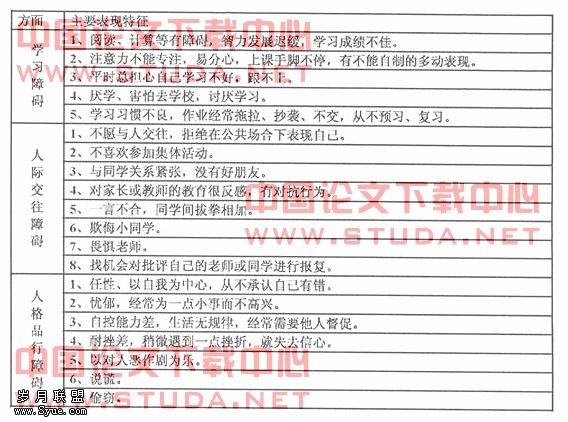 方面 主要表现特征
学习障碍
1、阅读、计算等有障碍，智力发展迟缓，学习成绩不佳。
2、注意力不能专注，易分心，上课手脚不停，有不能自制的多动表现。
3、平时总担心自己学习不好，跟不上。
4、厌学、害怕去学校，讨厌学习。
5、学习习惯不良，作业经常拖拉、抄袭、不交，从不预习、复习。
人际交往障碍
1、不愿与人交往，拒绝在公共场合下表现自己。
2、不喜欢参加集体活动。
3、与同学关系紧张，没有好朋友。
4、对家长或教师的教育很反感，有对抗行为。
5、一言不合，同学间拔拳相加。
6、欺侮小同学。
7、畏惧老师。
8、找机会对批评自己的老师或同学进行报复。
人格品行障碍
1、任性、以自我为中心，从不承认自己有错。
2、忧郁，经常为一点小事而不高兴。
3、自控能力差，生活无规律，经常需要他人督促。
4、耐挫差，稍微遇到一点挫折，就失去信心。
5、以对人恶作剧为乐。
6、说谎。
7、偷窃。
中国论文下载中心
WWW.STUDA.NET
中国论文下载中心
WWW.STUDA.NET
中国论文下载中心
WWW.STUDA.NET
岁月联盟
www.Syue.com